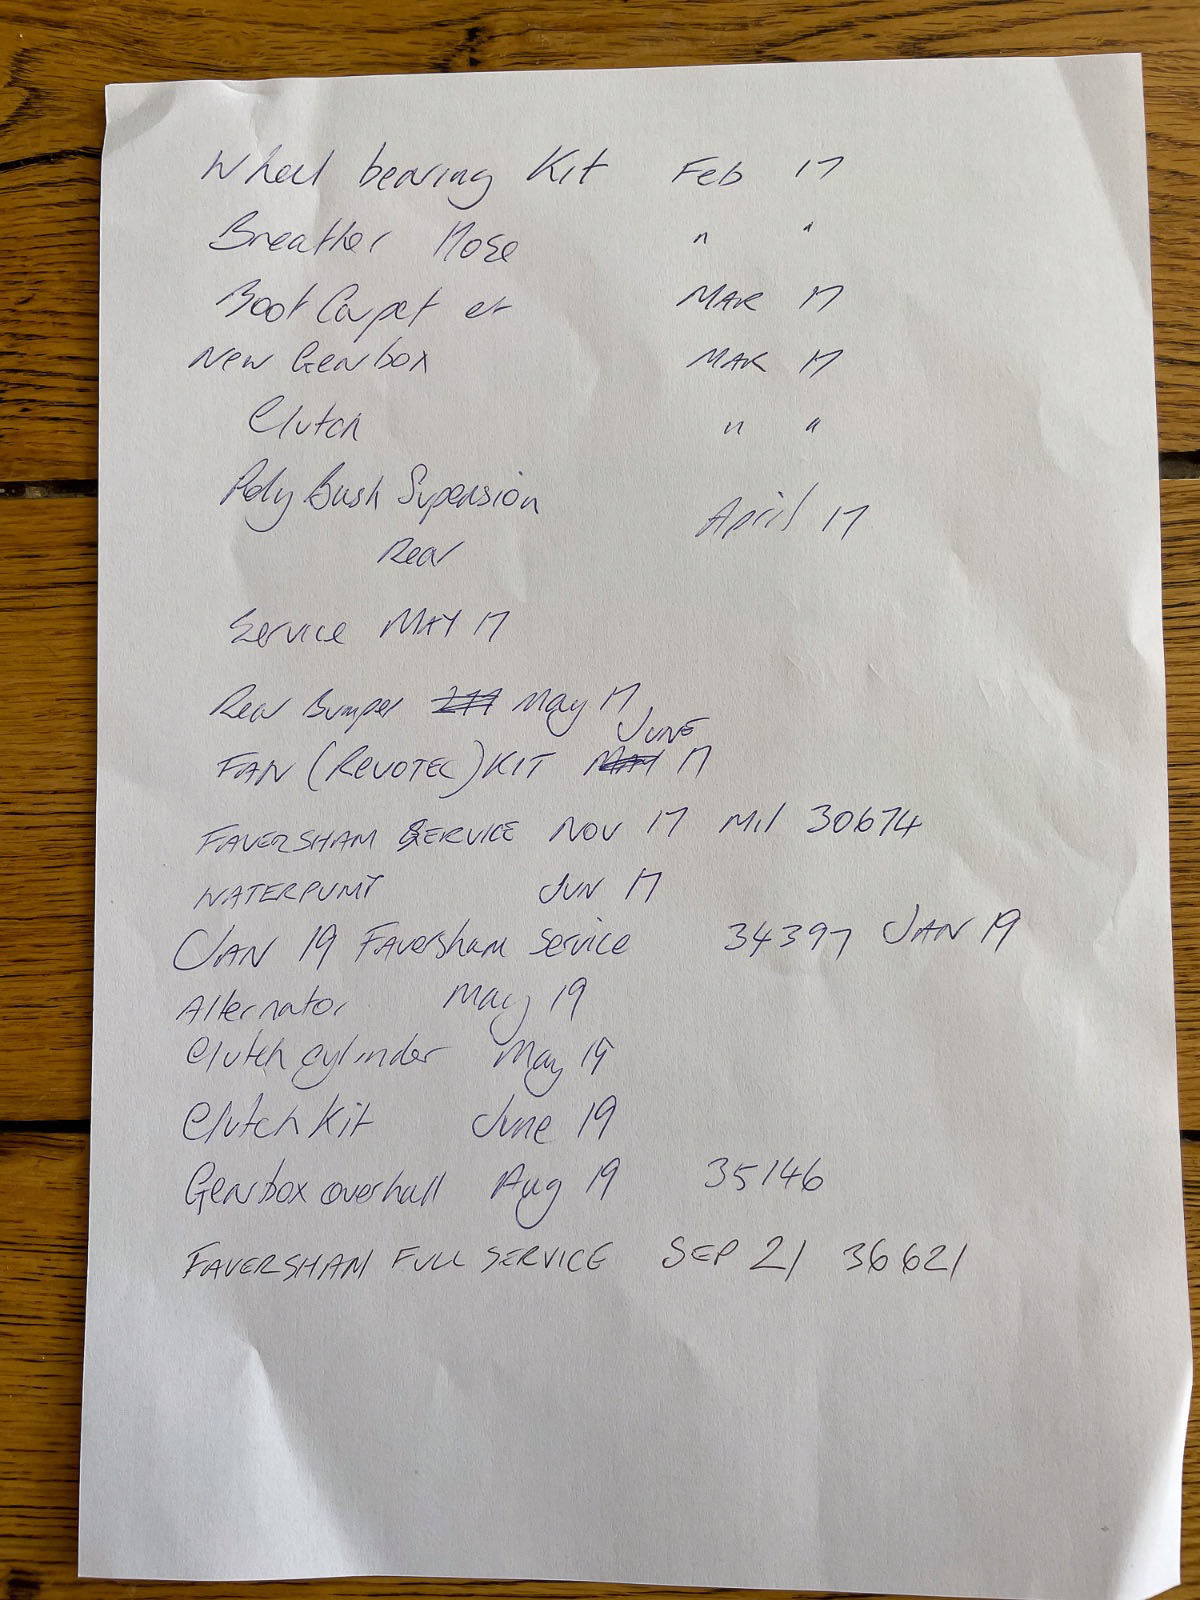 Wheel bearing Kit Feb 17
Breather Hose " "
Boot Carpet et MAR 17
New Gearbox MAR 17
Clutch " "
Poly Bush Supension April 17
Rear
Service MAY 17
Rear Bumper May 17
JUNE
FAN (REVOTEC) KIT MAY 17
FAVERSHAM SERVICE NOV 17 Mil 30674
WATERPUMP JUN 17
JAN 19 Faversham Service 34397 JAN 19
Alternator May 19
Clutch cylinder May 19
Clutch Kit June 19
Gearbox overhall Aug 19 35146
FAVERSHAM FULL SERVICE SEP 21 36621